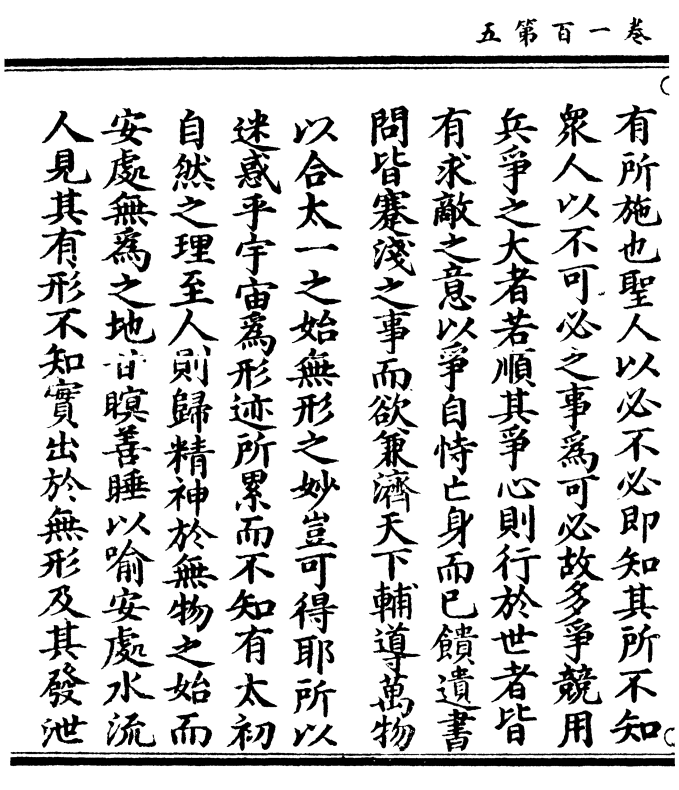 卷一百第五
有所施也聖人以必不必即知其所不知
眾人以不可必之事為可必故多爭競用
兵爭之大者若順其爭心則行於世者皆
有求敵之意以爭自恃亡身而已饋遺書
問皆蹇淺之事而欲兼濟天下輔導萬物
以合太一之始無形之妙豈可得耶所以
迷惑乎宇宙為形迹所累而不知有太初
自然之理至人則歸精神於無物之始而
安處無為之地甘瞑善睡以喻安處水流
人見其有形不知實出於無形及其發泄